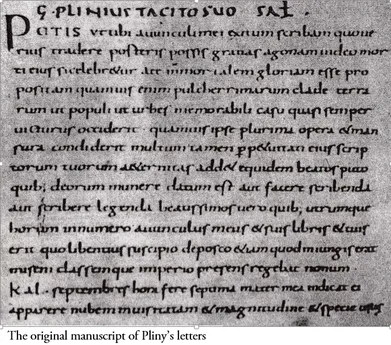 C· PLINIUS TACITO SUO SAL̄·
PETIS ut tibi avunculi mei exitum scribam quove
rius tradere posteris possis gratias ago nam video mor
ti eius si celebretur a te immortalem gloriam esse pro
positam quamvis enim pulcherrimarum clade terra
rum ut populi ut urbes memorabili casu quasi semper
victurus occiderit quamvis ipse plurima opera & man
sura condiderit multum tamen perpetuitati eius scrip
torum tuorum aeternitas add& equidem beatos puto
quib; deorum munere datum est aut facere scribenda
aut scribere legenda beatissimos vero quib; utrumque
horum in numero avunculus meus & suis libris & tuis
erit quo libentius suscipio deposco &iam quod iniungis erat
miseni classemque imperio presens regebat nonum
KAL· septembres hora fere septima mater mea indicat ei
apparere nubem inusitata & magnitudine & specie usus
The original manuscript of Pliny's letters